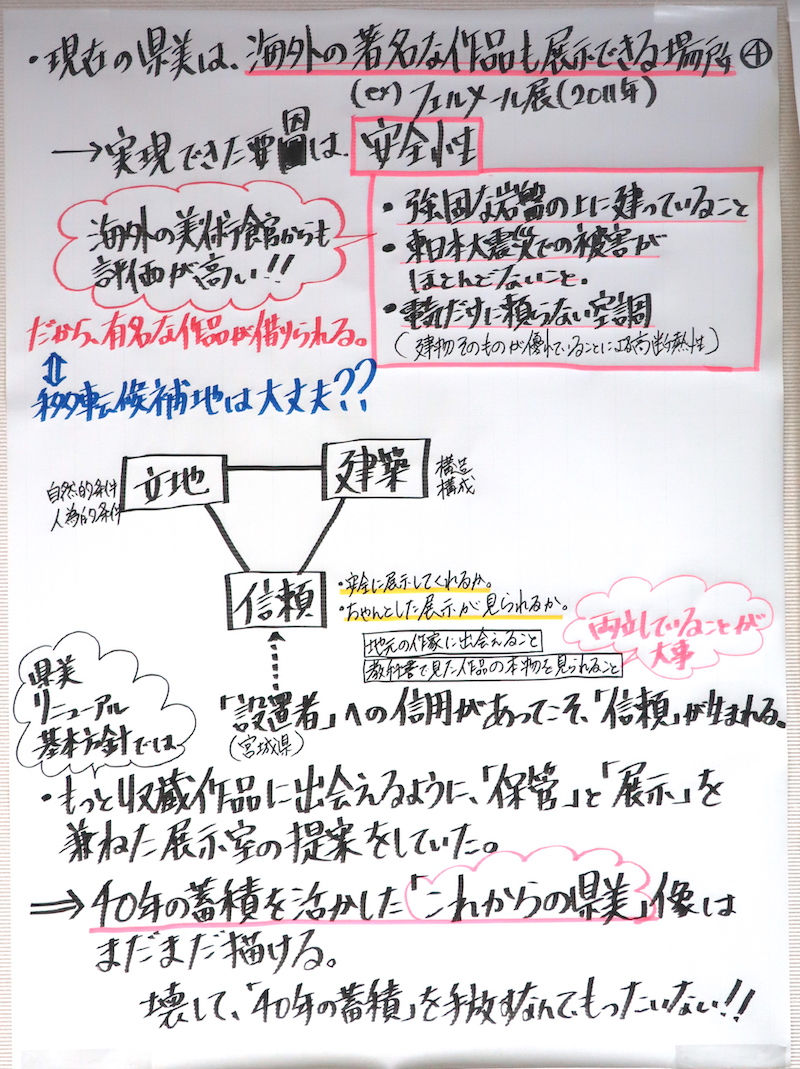 ・現在の県美は、海外の著名な作品も展示できる場所 ④
(ex) フェルメール展(2011年)
→実現できた要因は、安全性
・強固な岩盤の上に建っていること
・東日本大震災での被害が
ほとんどないこと。
・電気だけに頼らない空調
(建物そのものが優れていることによる高断熱性)
海外の美術館からも
評価が高い!!
だから、有名な作品が借りられる。
⇕
移転候補地は大丈夫??
立地
自然的条件
人為的条件
建築
構造
構成
信頼
・安全に展示してくれるか。
・ちゃんとした展示が見られるか。
地元の作家に出会えること
教科書で見た作品の本物を見られること
両立していることが
大事
「設置者」への信用があってこそ、「信頼」が生まれる。
(宮城県)
県美
リニューアル
基本方針では
・もっと収蔵作品に出会えるように、「保管」と「展示」を
兼ねた展示室の提案をしていた。
⇒ 40年の蓄積を活かした「これからの県美」像は
まだまだ描ける。
壊して、「40年の蓄積」を手放すなんてもったいない!!